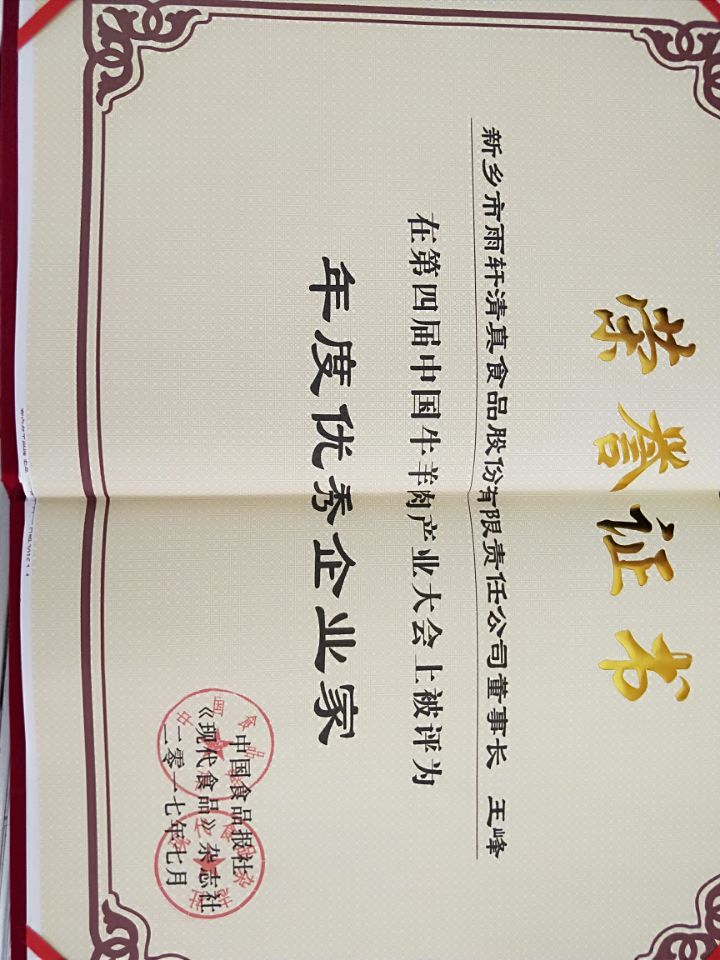 荣誉证书
新乡市雨轩清真食品股份有限责任公司董事长 王峰
在第四届中国牛羊肉产业大会上被评为
年度优秀企业家
中国食品报社
《现代食品》杂志社
二零一七年七月